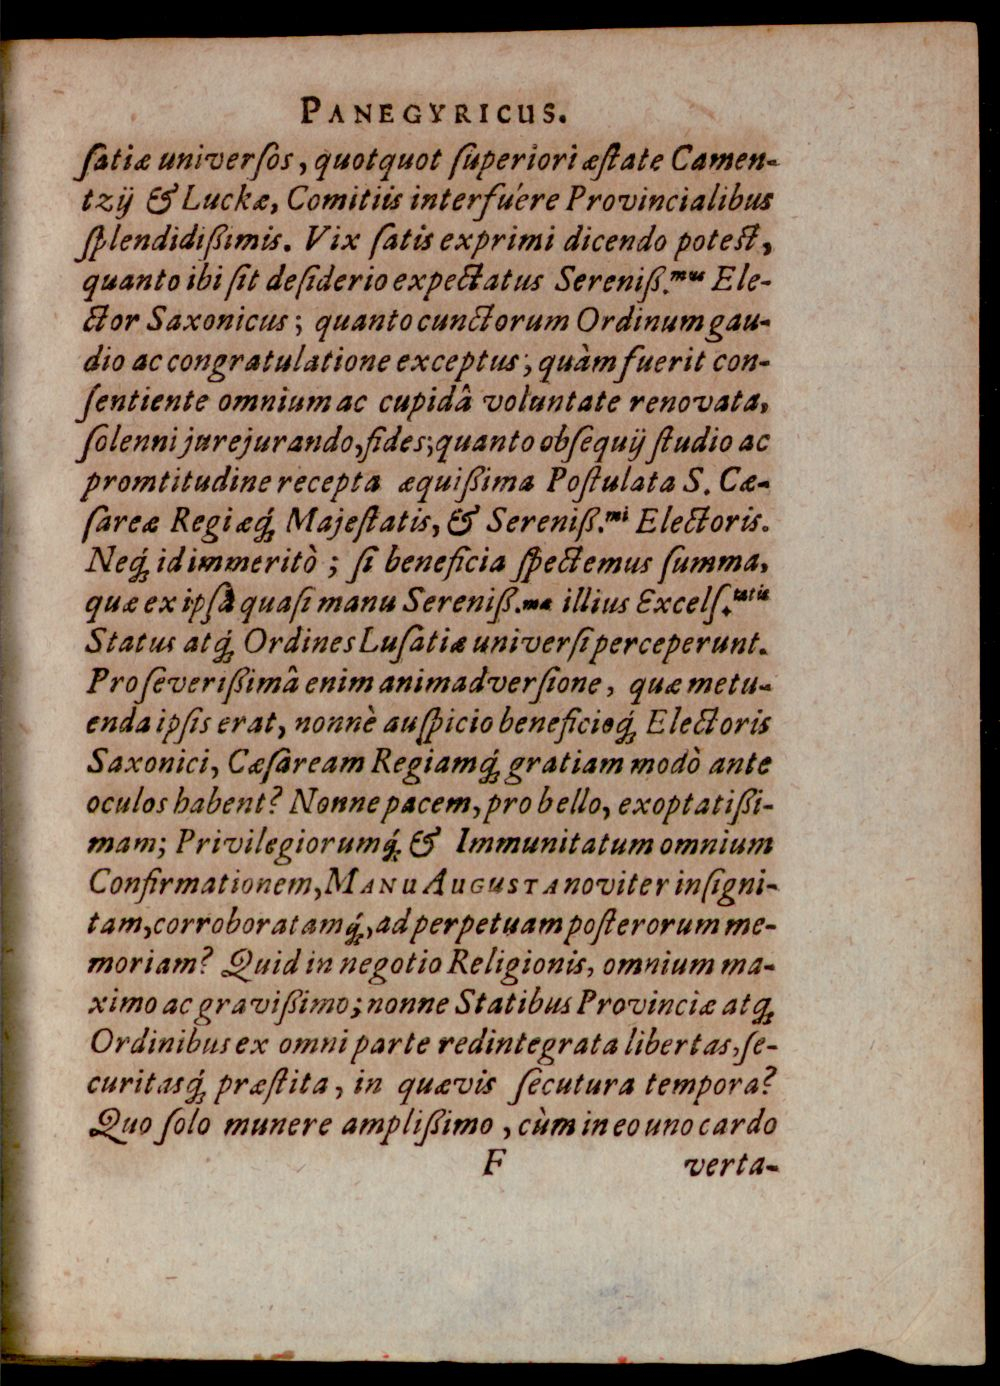 PANEGYRICUS.
ſatiæ univerſos, quotquot ſuperiori æſtate Camen-
tzij & Luckæ, Comitiis interfuére Provincialibus
ſplendidißimis. Vix ſatis exprimi dicendo poteſt,
quanto ibi ſit deſiderio expectatus Sereniß.mus Ele-
ctor Saxonicus; quanto cunctorum Ordinum gau-
dio ac congratulatione exceptus; quàm fuerit con-
ſentiente omnium ac cupidâ voluntate renovata,
ſolenni jurejurando, fides; quanto obſequij ſtudio ac
promtitudine recepta æquißima Poſtulata S. Cæ-
ſareæ Regiæq́; Majeſtatis, & Sereniß.mi Electoris.
Neq́; id immeritò; ſi beneficia ſpectemus ſumma,
quæ ex ipſâ quaſi manu Sereniß.mæ illius Excelſ.tatis
Status atq́; Ordines Luſatiæ univerſi perceperunt.
Pro ſeverißimâ enim animadverſione, quæ metu-
enda ipſis erat, nonnè auſpicio beneficioq́; Electoris
Saxonici, Cæſaream Regiamq́; gratiam modò ante
oculos habent? Nonne pacem, pro bello, exoptatißi-
mam; Privilegiorumq́; & Immunitatum omnium
Confirmationem, MANU AUGUSTA noviter inſigni-
tam, corroboratamq́;, ad perpetuam poſterorum me-
moriam? Quid in negotio Religionis, omnium ma-
ximo ac gravißimo; nonne Statibus Provinciæ atq;
Ordinibus ex omni parte redintegrata libertas, ſe-
curitasq́; præſtita, in quævis ſecutura tempora?
Quo ſolo munere amplißimo, cùm in eo uno cardo
F verta-